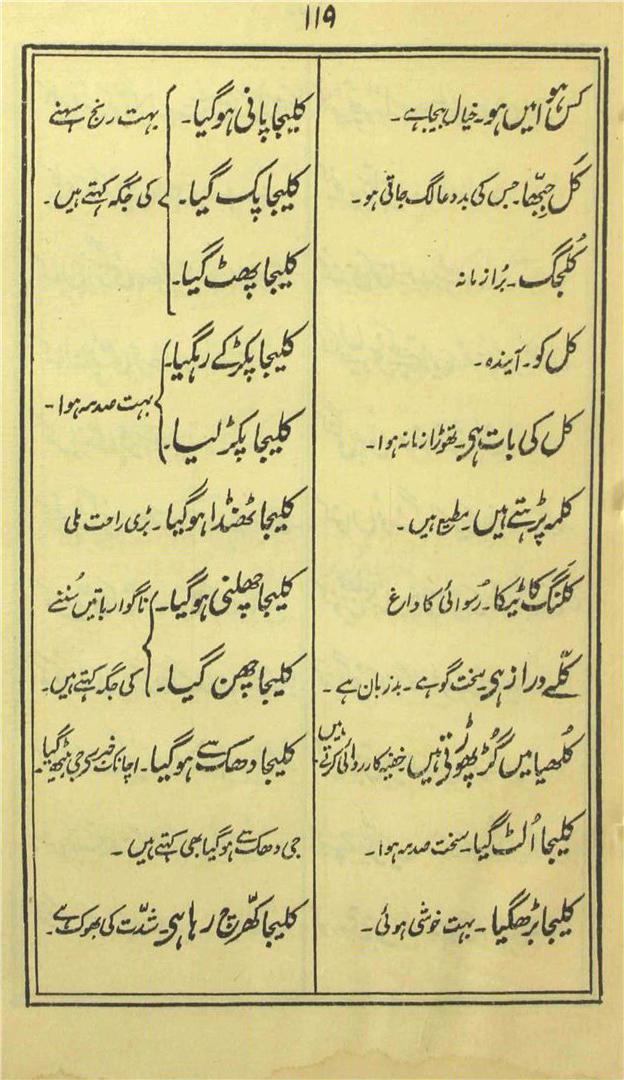 ۱۱۹
کس ہوا میں ہو۔ خیال بیجا ہے۔
کل جبّھا۔ جس کی بد دعا لگ جاتی ہو۔
کُلجگ۔ بُرا زمانہ
کل کو۔ آیندہ۔
کل کی بات ہی۔ تھوڑا زمانہ ہوا۔
کلمہ پڑہتے ہیں۔ مطیع ہیں۔
کلنک کا ٹیکا۔ رُسوائی کا داغ
کلّے دراز ہی۔ سخت گو ہے۔ بدزبان ہے۔
کُلھیا میں گُڑ پھوڑتی ہیں۔ خفیہ کارروائی کرتے ہیں
کلیجا اُلٹ گیا۔ سخت صدمہ ہوا۔
کلیجا بڑھگیا۔ بہت خوشی ہوئی۔
کلیجا پانی ہوگیا۔ بہت رنج سہنے
کلیجا پک گیا۔ کی جگہ کہتے ہیں۔
کلیجا پھٹ گیا۔
کلیجا پکڑ کے رہگیا۔
بہت صدمہ ہوا۔
کلیجا پکڑ لیا۔
کلیجا ٹھنڈا ہوگیا۔ بڑی راحت ملی
کلیجا چھلنی ہوگیا۔ ناگوار باتیں سُننے
کلیجا چھن گیا۔ کی جگہ کہتے ہیں۔
کلیجا دھک سے ہوگیا۔ اچانک خبر سے جی بیٹھ گیا۔
جی دھک سے ہوگیا بھی کہتے ہیں۔
کلیجا کھرچ رہا ہی۔ شدّت کی بھوک ہے۔